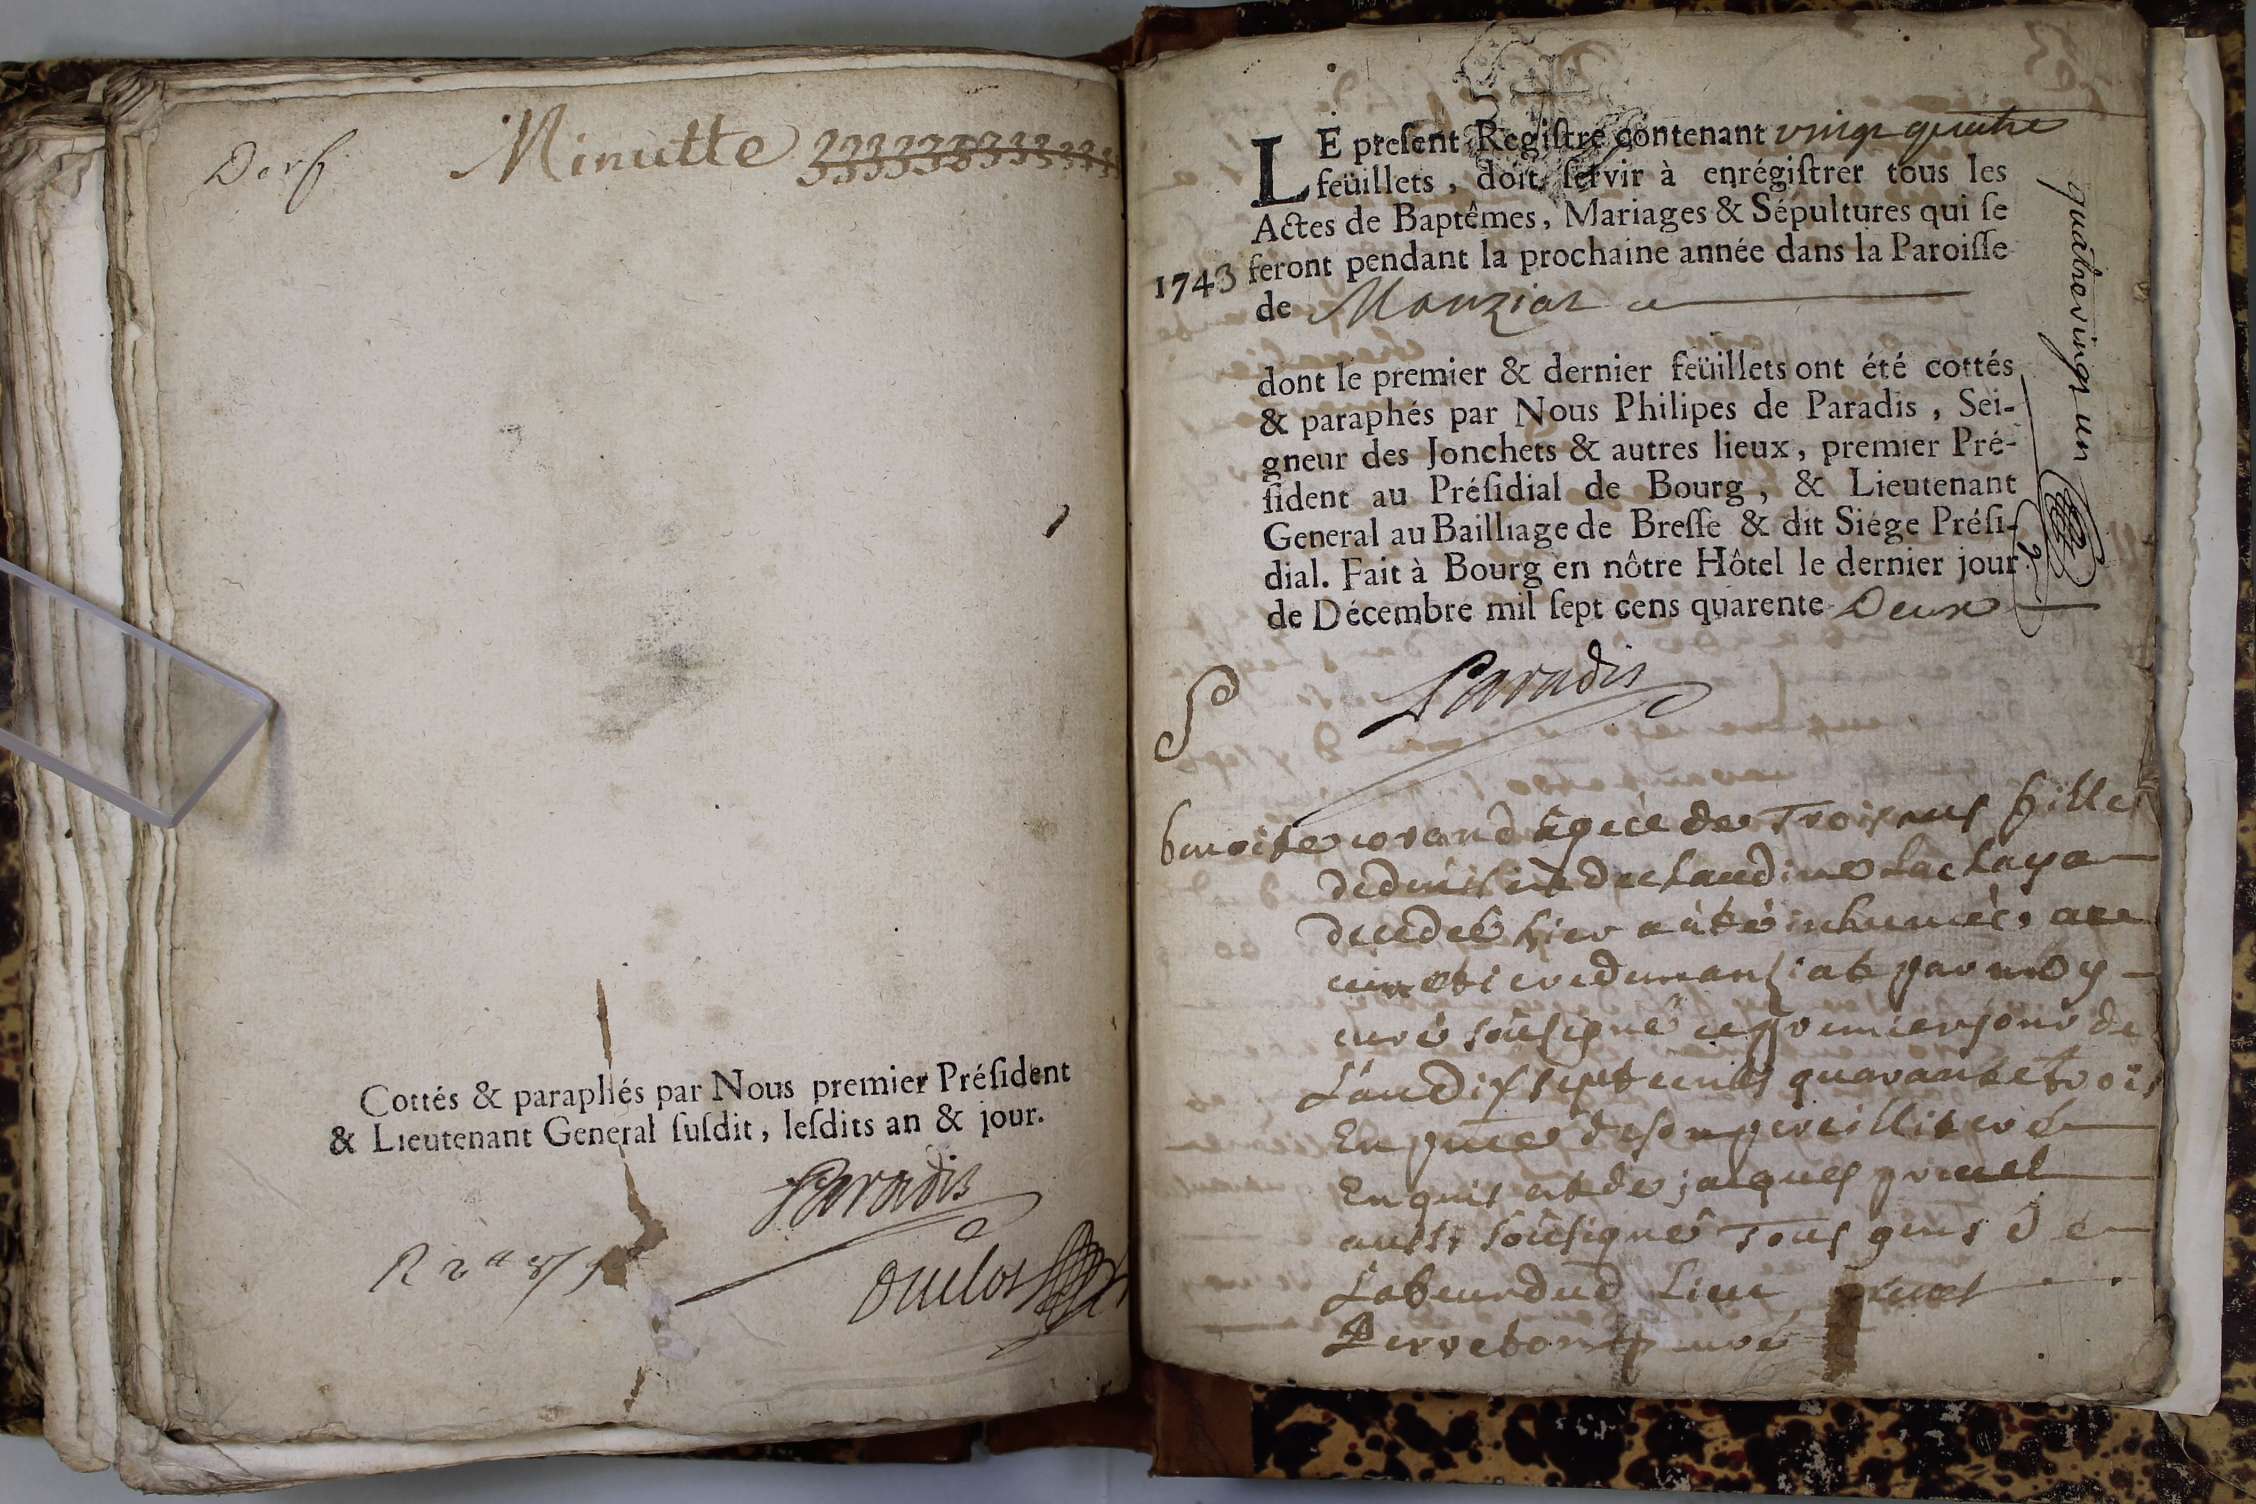 Minutte
Cottés & paraphés par Nous premier Préſident
& Lieutenant General ſuſdit, leſdits an & jour.
Paradis
Duclos
LE preſent Regiſtre contenant vingt quatre
feüillets, doit ſervir à enrégiſtrer tous les
Actes de Baptêmes, Mariages & Sépultures qui ſe
1743 feront pendant la prochaine année dans la Paroiſſe
de Manziat
dont le premier & dernier feüillets ont été cottés
& paraphés par Nous Philipes de Paradis, Sei-
gneur des Jonchets & autres lieux, premier Pré-
ſident au Préſidial de Bourg, & Lieutenant
General au Bailliage de Breſſe & dit Siége Préſi-
dial. Fait à Bourg en nôtre Hôtel le dernier jour
de Décembre mil ſept cens quarente Deux
quatrevingt un
Paradis
benoite agèe de Trois ans fille
de claudine
decedeé hier a été inhumeé au
cimetiere de manziat par moy
curé soûsigné ce premier jour de
L'an dix sept cents quarante trois
En presence de
En de jacques pruel
aussi soûsigné Tous gens de
Labeur dud Lieu pruel
Perreton curé